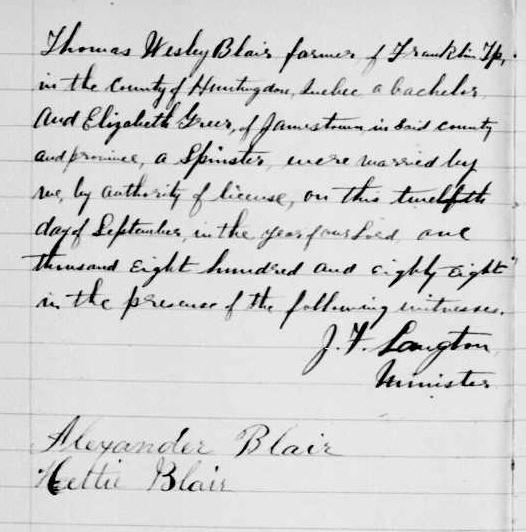 Thomas Wesley Blair farmer of Franklin Tp,
in the County of Huntingdon, Quebec a bachelor,
And Elizabeth Greer, of Jamestown in said county
and province, a Spinster, were married by
me, by authority of license, on this twelfth
day of September, in the year of our Lord, one
thousand eight hundred and eighty eight
in the presence of the following witnesses.
J. F. Langton,
Minister
Alexander Blair
Hettie Blair